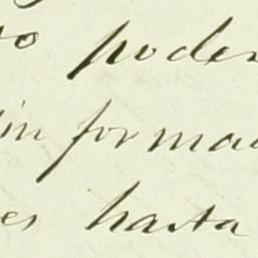 to poder
in forma
es hasta